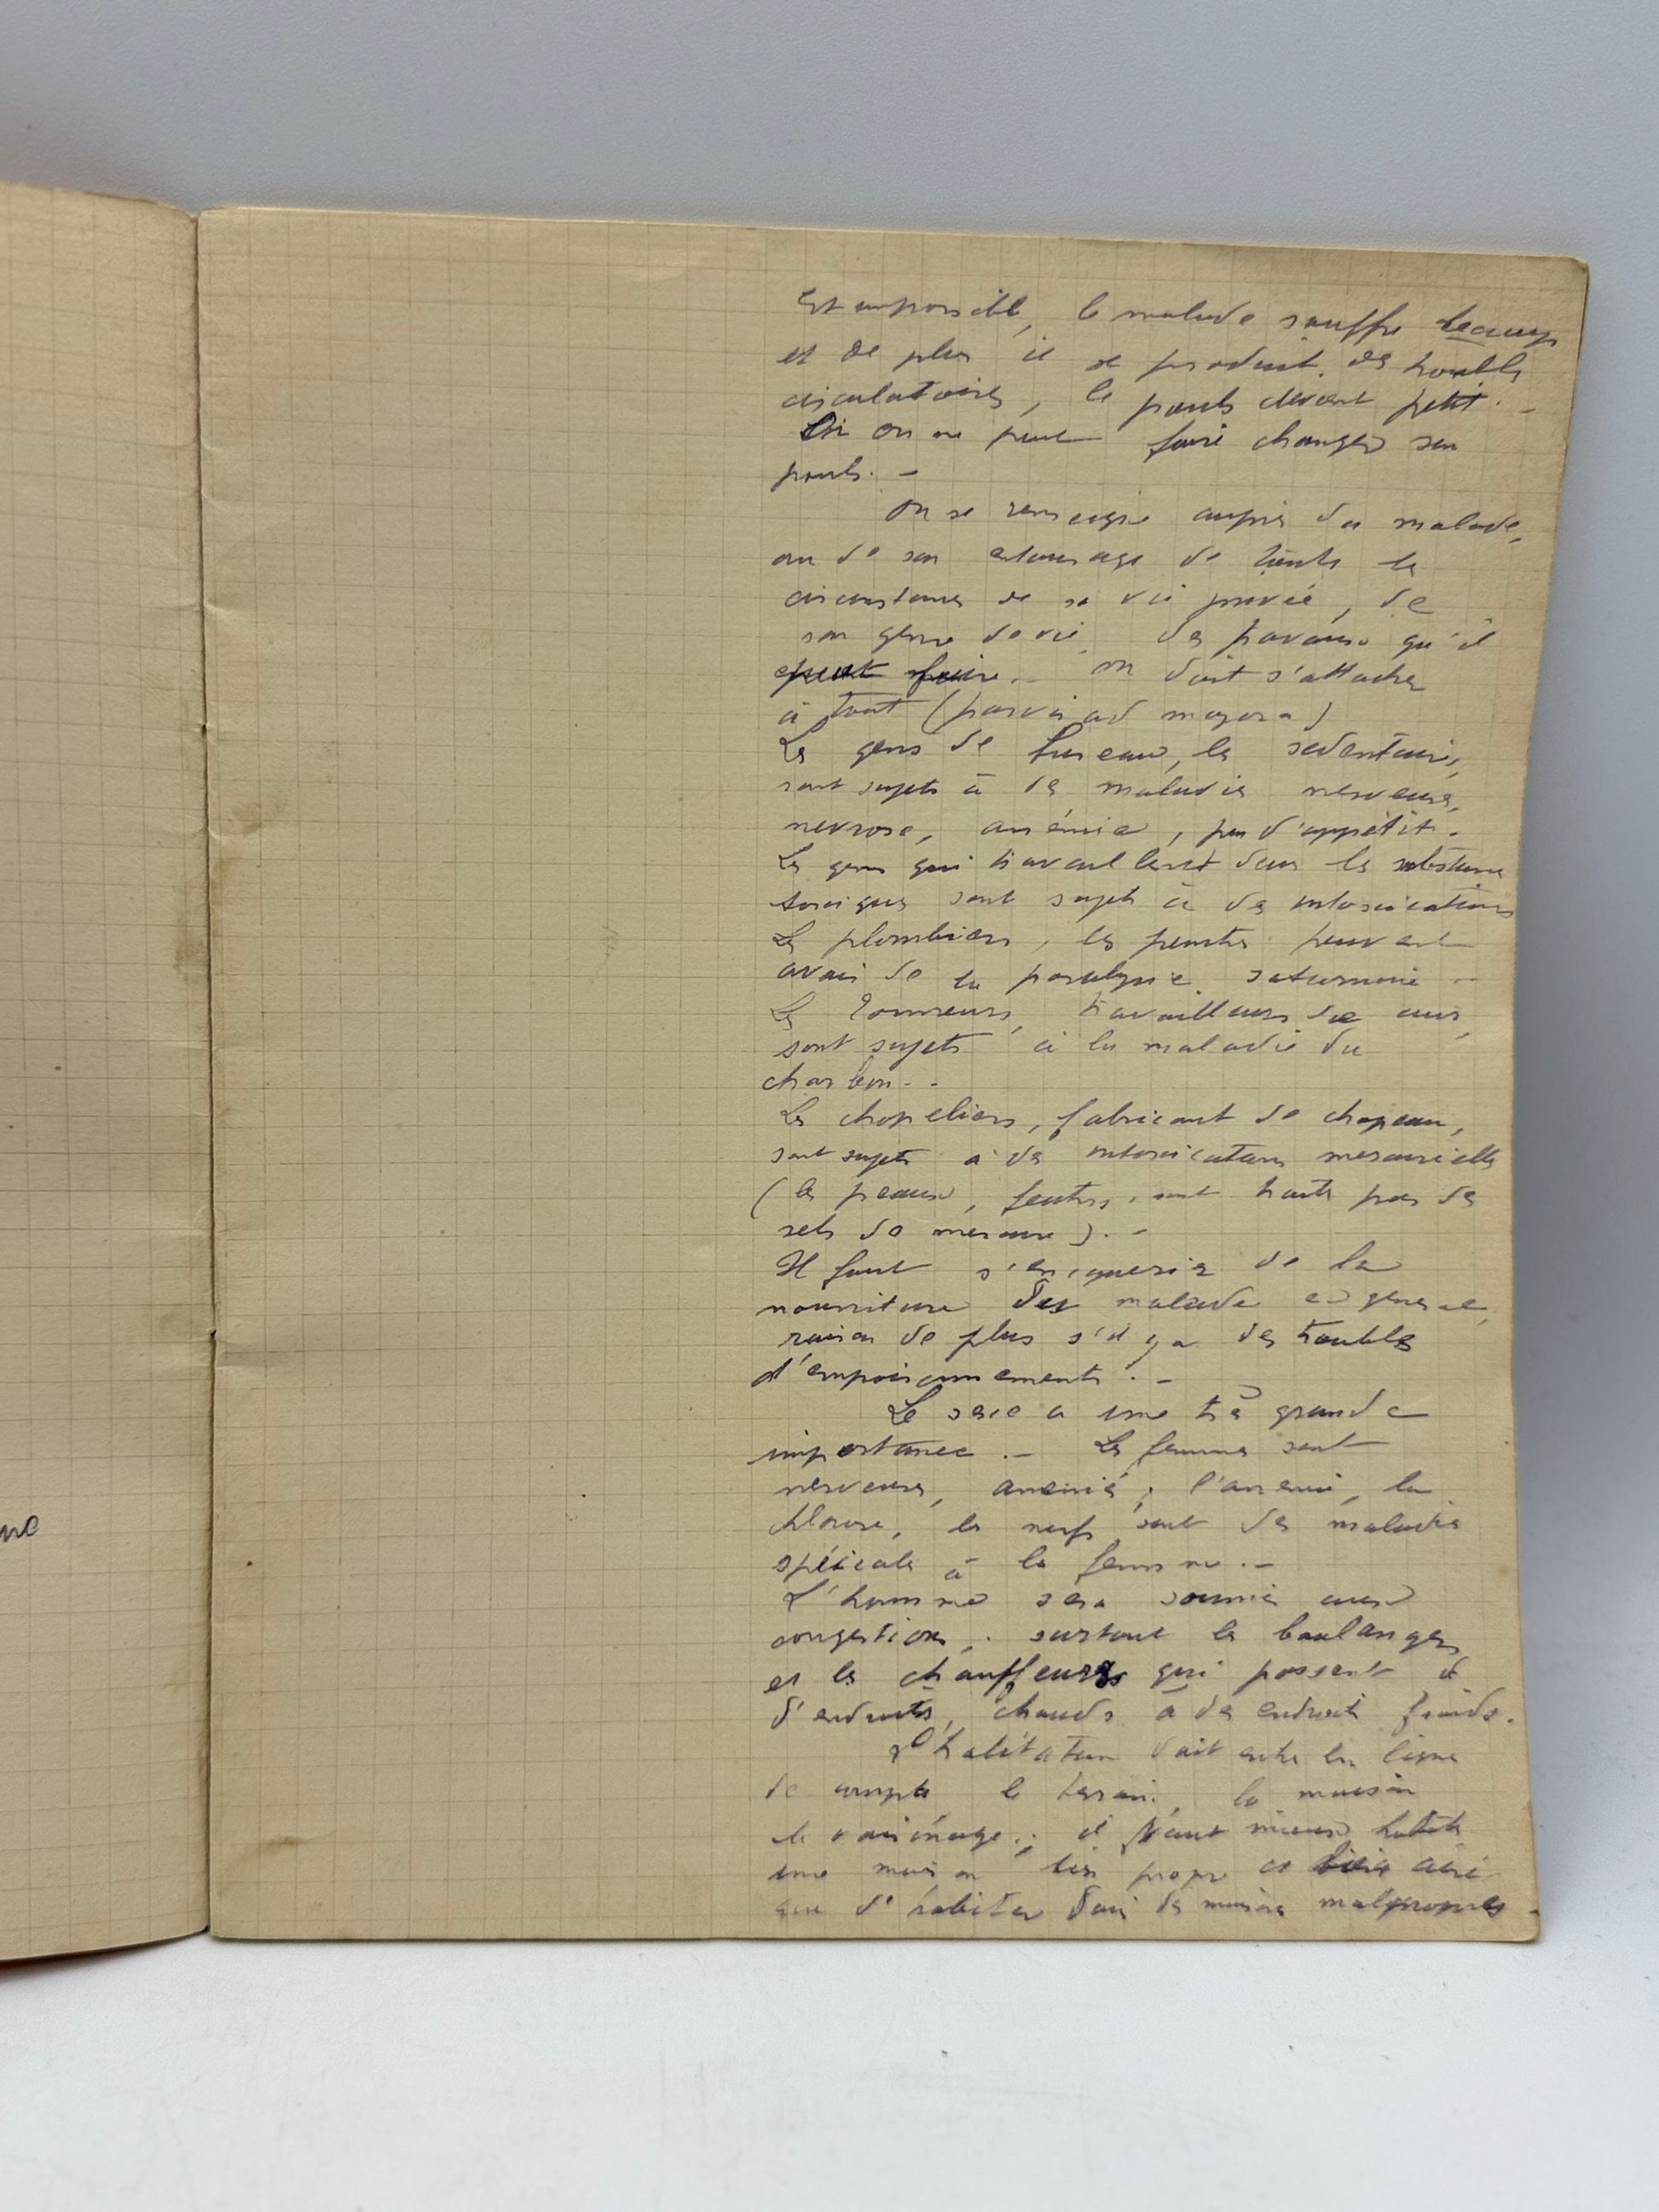 est impossible, le malade souffre beaucoup
et de plus il se produit des troubles
circulatoires, le pouls devient petit. -
on ne peut faire changer son
pouls. -
On se renseigne auprès du malade,
ou de son entourage de toutes les
circonstances de sa vie privée, de
son genre de vie, des travaux qu'il
peut faire. - On doit s'attacher
à tout (parvis ad majora)
Les gens de bureau, les sédentaires,
sont sujets à des maladies nerveuses,
nevrose, anémie, peu d'appétit.
Les gens qui travaillent dans les substances
toxiques sont sujets à des intoxications
Les plombiers, les peintres peuvent
avoir de la paralysie saturnine -
Les tanneurs, travailleurs de cuir,
sont sujets à la maladie du
charbon. -
Les chapeliers, fabricant de chapeau,
sont sujets à des intoxications mercurielles
(les peaux, feutres, sont traités par des
sels de mercure). -
Il faut s'enquérir de la
nourriture des malade en général,
raison de plus s'il y a des troubles
d'empoisonnements. -
Le sexe a une très grande
importance. - Les femmes sont
nerveuses, anémié, l'anémie, la
chlorose, les nerfs sont des maladies
spéciales à la femme. -
L'homme sera soumis aux
congestions, surtout les boulangers
et les chauffeurs qui passent de
d'endroits chauds à des endroits froids.
L'habitation doit entre en ligne
de compte le terrain, la maison
le voisinage; il vaut mieux habiter
une maison bien propre et bien aéré
que d'habiter dans des maisons malpropres -